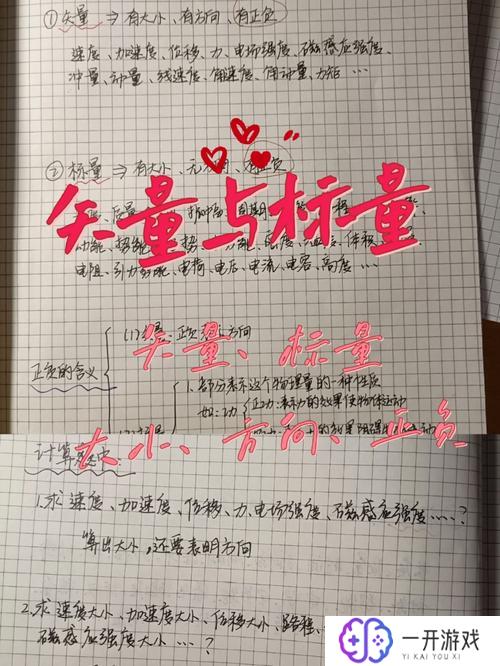 ① 矢量 ⇒ 有大小、有方向、有正负
速度、加速度、位移、力、电场强度、磁感应强度、
冲量、动量、线速度、角速度、角动量、力矩 …
② 标量 ⇒ 有大小、无 有正负
矢量与标量
质量 振幅 周期 能 程
动能、势能 势 体积
电阻、引力势能、电荷、电压、电流、电容、高度 …
正负的含义
(1) 正负 方向
矢量、标量
1. 部分表示这个物理量的一种性质
如：功 正功：表示力的效果使物体运动
的效果阻碍 动
大小、方向、正负
计算 中
1.求速度、加速度、位移、力、电场强度、磁感应强度……?
算出大小，还要表明方向
2.求速度大小、加速度大小、位移大小、路程、
磁感应强度大小 …?
一开游戏
YI KAI YOU XI